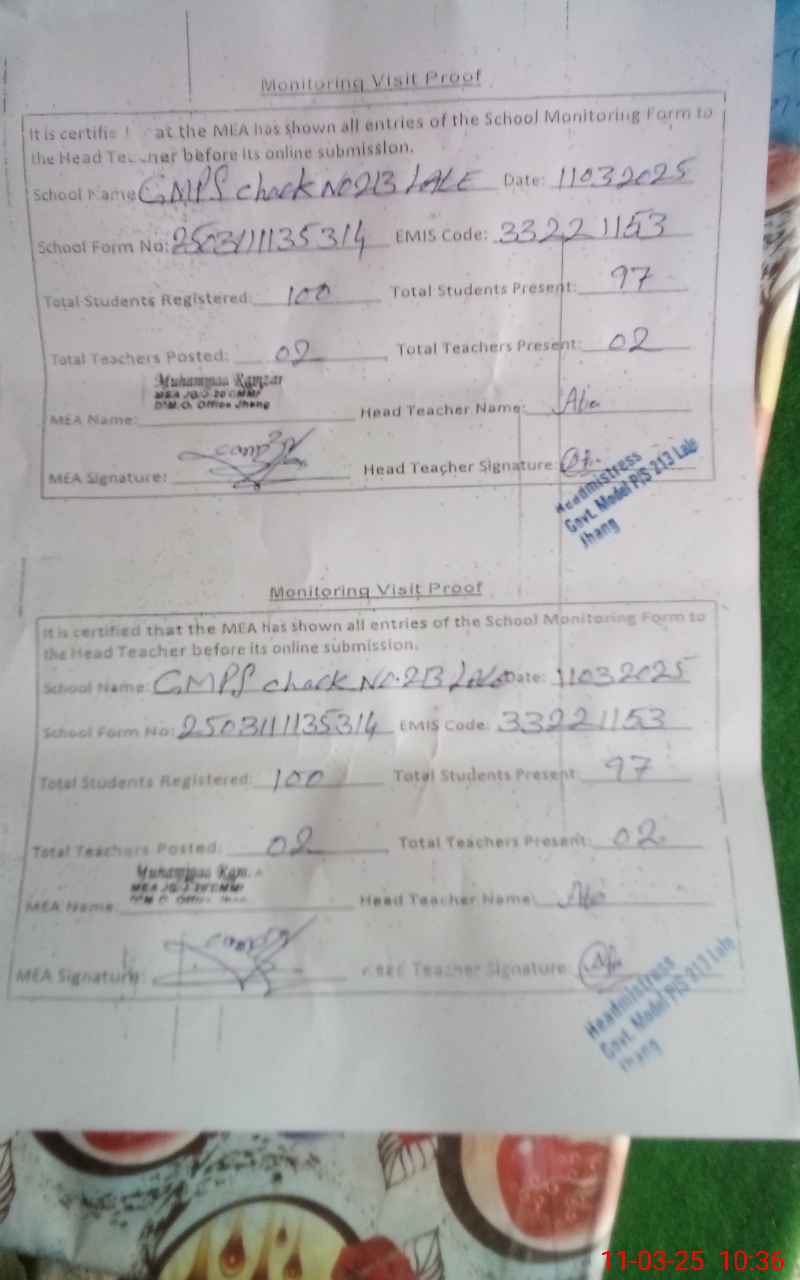 Monitoring Visit Proof
It is certifie at the MEA has shown all entries of the School Monitoring Form to
the Head Teacher before its online submission.
School Name GMPS chack No 213 LALE Date: 11032025
School Form No: 2503111135314 EMIS Code: 33221153
Total Students Registered: 100 Total Students Present: 97
Total Teachers Posted: 02 Total Teachers Present: 02
Muhammad Ramzan
D.M.O. Office Jhang
MEA Name: Head Teacher Name:
MEA Signature: Head Teacher Signature:
Headmistress
Govt. Model P/S 213 Lale
Jhang
Monitoring Visit Proof
It is certified that the MEA has shown all entries of the School Monitoring Form to
the Head Teacher before its online submission.
School Name: GMPS chack No. 213 Lale Date: 11032025
School Form No: 2503111135314 EMIS Code: 33221153
Total Students Registered: 100 Total Students Present: 97
Total Teachers Posted: 02 Total Teachers Present: 02
MEA Name: Head Teacher Name:
MEA Signature: Teacher Signature:
Headmistress
Govt. Model P/S 213 Lale
Jhang
11-03-25 10:36